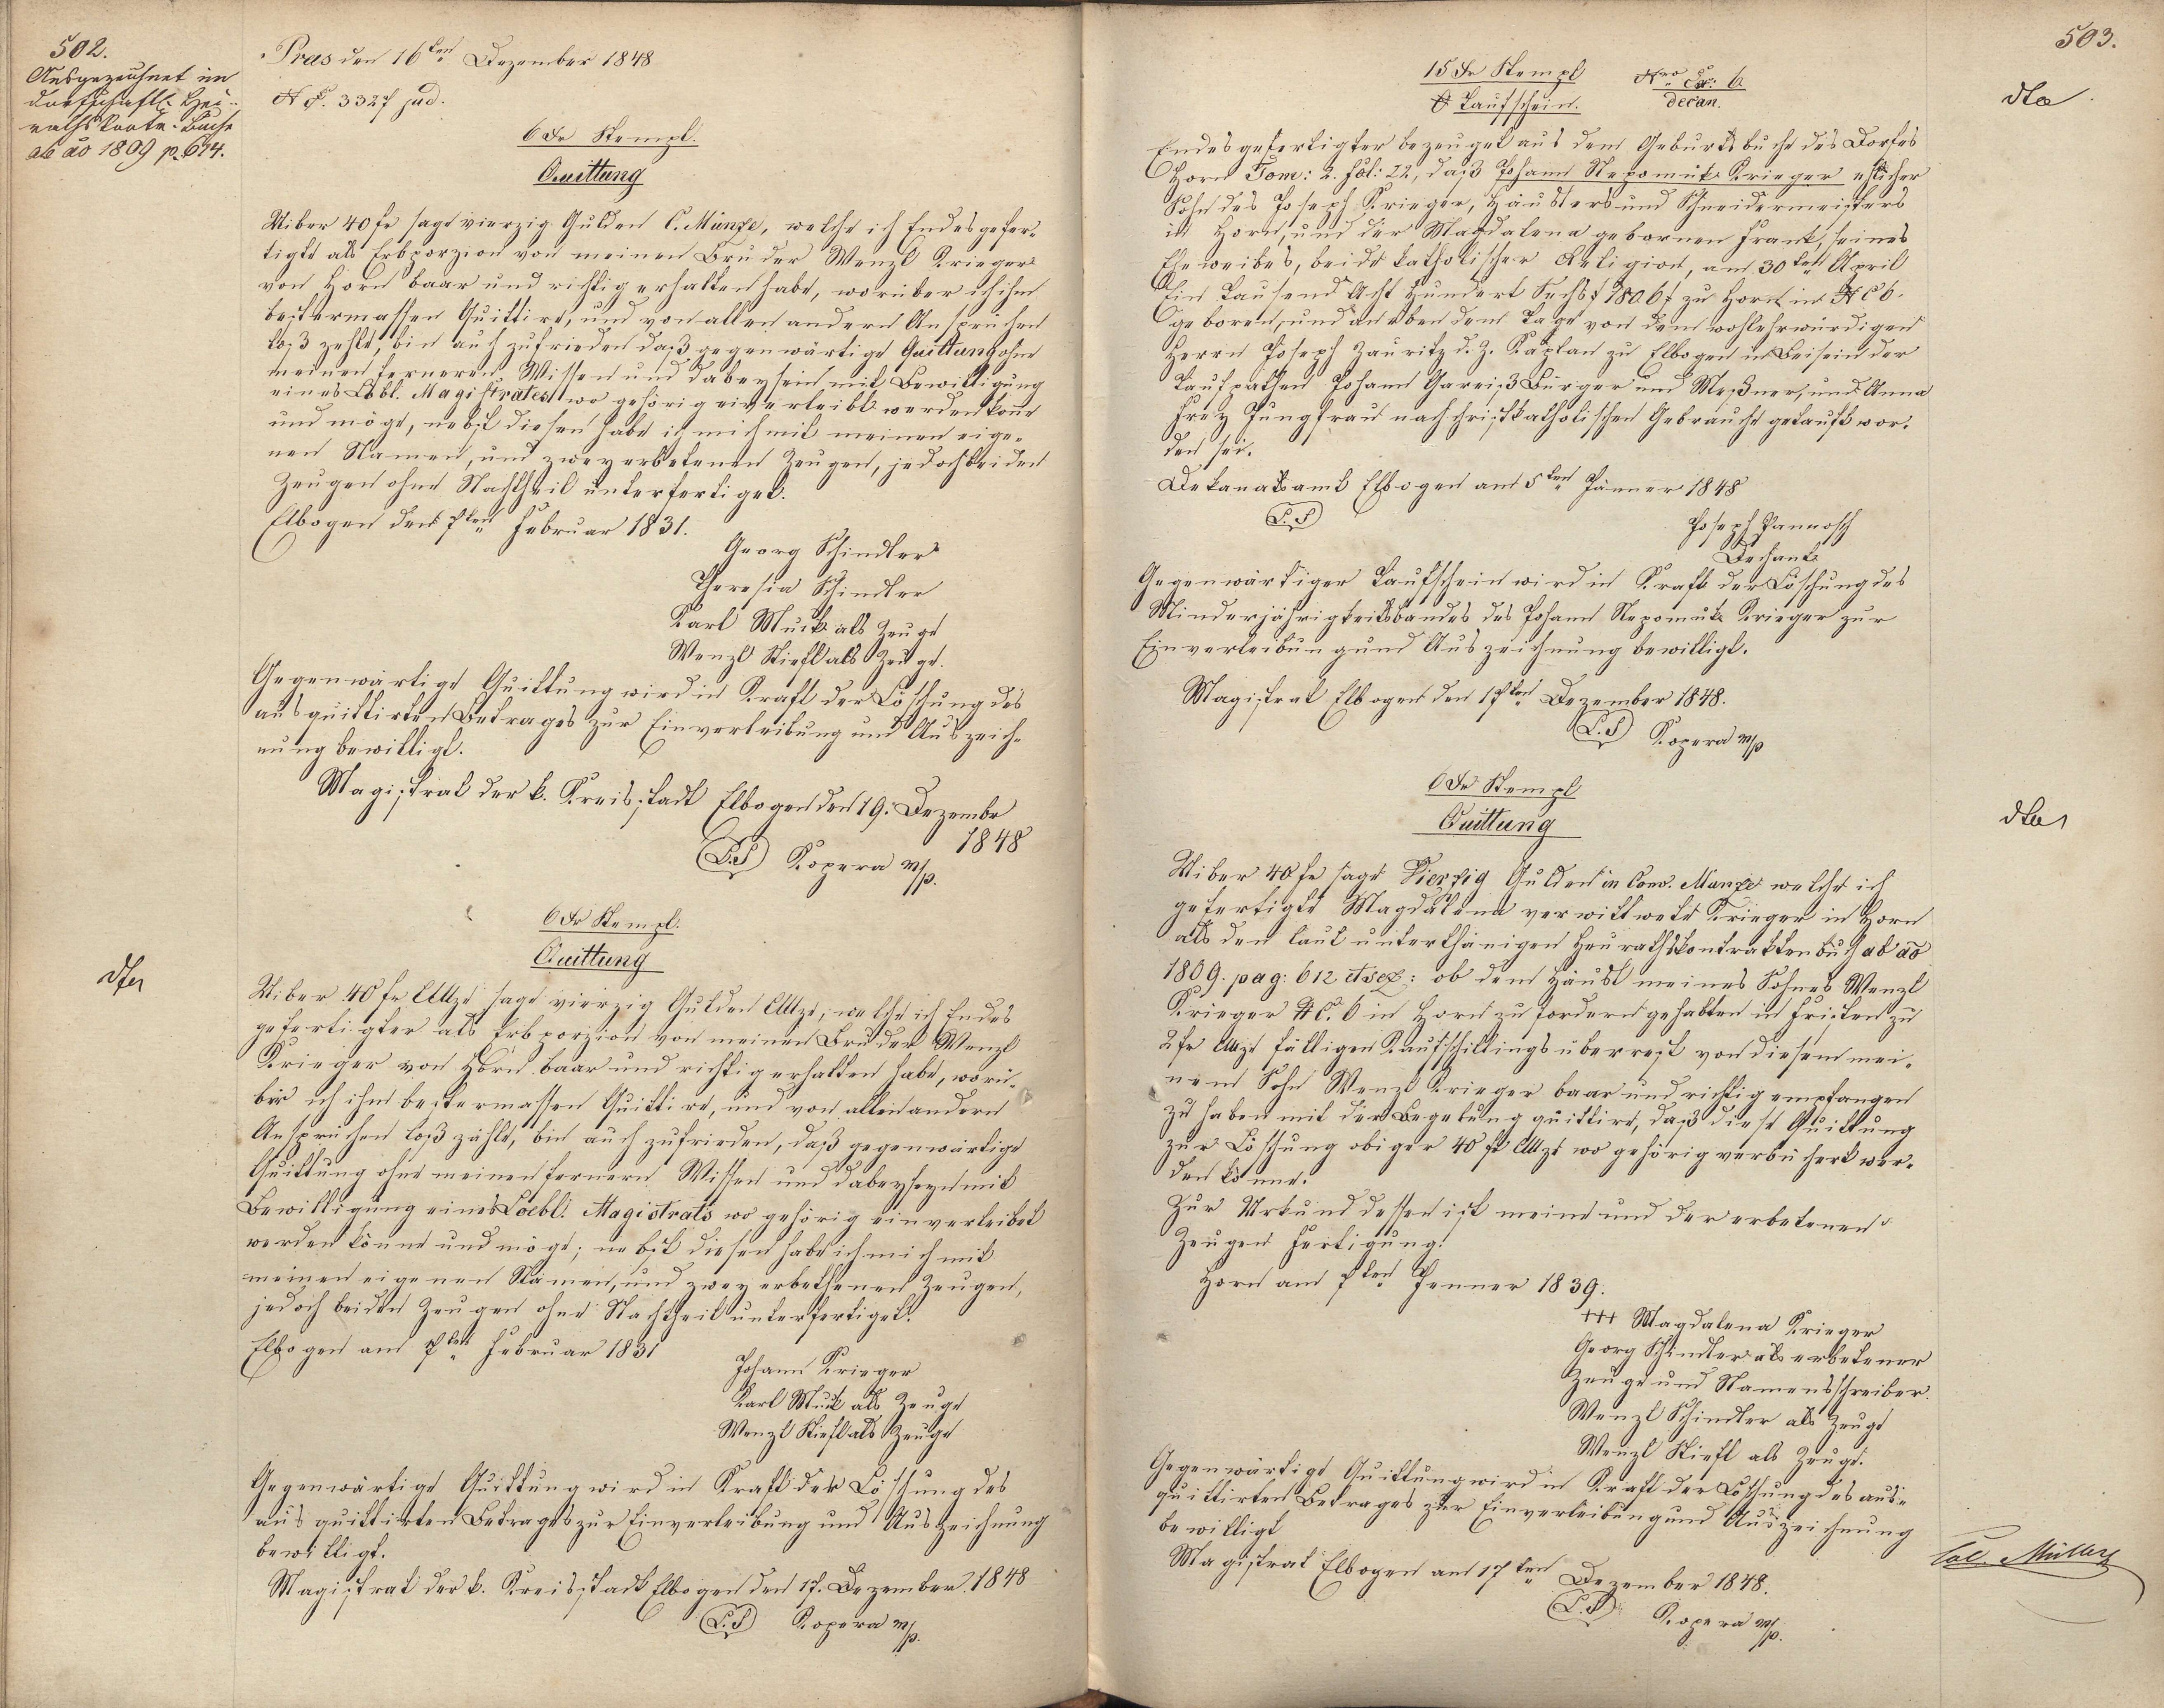 502.
Ausgezeichnet im
dorfschaftl. Heu-
raths Kontr. Buche
ab ao 1809 p. 614.
Pras den 16ten Dezember 1848
N E. 3327 jud.
6 Xr Stempl.
Quittung
Uiber 40 fr sage vierzig Gulden C. Münze, welche ich Endesgefer-
tigte als Erbporzion von meinen Bruder Wenzl Krieger
von Horn baar und richtig erhalten habe, worüber ich ihm
bestermassen Quittire, und von allen andern Ansprüchen
loß zehle, bin auch zufrieden daß gegenwärtige Quittung ohne
meinen ferneren Wissen und dabeysein mit Bewilligung
eines Löbl. Magistrates wo gehörig einverleibt werden könne
und möge, nebst diesen habe ich mich mit meinen eige-
nen Namen, und zwey erbetenen Zeugen, jedoch beiden
Zeugen ohne Nachtheil unterfertiget.
Elbogen den 7ten Februar 1831.
Georg Schindler
Theresia Schindler
Karl Muck als Zeuge
Wenzl Stiefl als Zeuge.
Gegenwärtige Quittung wird in Kraft der Löschung des
ausquittirten Betrages zur Einverleibung und Auszeich-
nung bewilligt.
Magistrat der k. Kreisstadt Elbogen den 19. Dezember
1848
L.S Kopera m/p.
dto
6 Xr Stempl.
Quittung
Uiber 40 fr CMze sage vierzig Gulden CMze, welche ich Endes
gefertigter als Erbporzion von meinen Bruder Wenzl
Krieger von Horn baar und richtig erhalten habe, worü-
ber ich ihm bestermassen Quittire, und von allen andern
Ansprüchen loß zähle, bin auch zufrieden, daß gegenwärtige
Quittung ohne meinen fernern Wissen und dabeyseyn mit
Bewilligung eines Loebl. Magistrats wo gehörig einverleibet
werden könne und möge; nebst diesen habe ich mich mit
meinen eigenen Namen, und zwey erbethenen Zeugen,
jedoch beiden Zeugen ohne Nachtheil unterfertiget.
Elbogen am 7ten Februar 1831
Johann Krieger
Karl Muck als Zeuge
Wenzl Stiefl als Zeuge
Gegenwärtige Quittung wird in Kraft der Löschung des
aus quittirten Betrages zur Einverleibung und Auszeichnung
bewilligt.
Magistrat der k. Kreisstadt Elbogen den 17. Dezember 1848
L.S Kopera m/p.
503.
15 Xr Stempl Nro Ex: 6
Taufschein. decan.
dto
Endesgefertigter bezeuget aus dem Geburtsbuche des Dorfes
Horn Tom: 2. Fol: 22, daß Johann Nepomuk Krieger ehlicher
Sohn des Joseph Krieger, Häuslers und Schneidermeisters
in Horn, und der Magdalena gebornen Frank, seines
Eheweibes, beide katholischer Religion, am 30ten April
Ein Tausend Acht Hundert Sechs f 1806 f zu Horn in N C 6.
geboren, und an eben dem Tage von dem wohlehrwürdigen
Herrn Joseph Zauritz d. Z. Kaplan zu Elbogen in Beisein der
Taufpathen Johann Gareiß Bürger und Meßner, und Anna
Frez Jungfrau nach christkatholischen Gebrauche getauft wor-
den sei.
Dekanatsamt Elbogen am 5ten Jänner 1848
L.S
Joseph Pannosch
Dechant
Gegenwärtiger Taufschein wird in Kraft der Löschung des
Minderjährigkeitsbandes des Johann Nepomuk Krieger zur
Einverleibung und Auszeichnung bewilligt.
Magistrat Elbogen den 17ten Dezember 1848.
L.S Kopera m/p
6 Xr Stempl
Quittung
dto
Uiber 40 fr sage Vierzig Gulden in Conv. Munze welche ich
gefertigte Magdalena verwittwete Krieger in Horn
als den laut unterthänigen Heurathskontraktenbuch ab ao
1809. pag: 612 et seq: ob dem Häusl meines Sohnes Wenzl
Krieger N C. 6 in Horn zu fordern gehabten in Fristen zu
2 fr CMze fälligen Kaufschillingsüberrest von diesem mei-
nem Sohn Wenzl Krieger baar und richtig empfangen
zu haben mit der Begebung quittire, daß diese Quittung
zur Löschung obiger 40 fr CMze wo gehörig verbüchert wer-
den könne.
Zur Urkund dessen ist meine und der erbetenen
Zeugen Fertigung.
Horn am 7ten Jenner 1839.
+++ Magdalena Krieger
Georg Schindler als erbetener
Zeuge und Namensschreiber.
Wenzl Schindler als Zeuge
Wenzl Stiefl als Zeuge.
Gegenwärtige Quittung wird in Kraft der Löschung des aus-
quittirten Betrages zur Einverleibung und Auszeichnung
bewilligt
Magistrat Elbogen am 17ten Dezember 1848.
L.S Kopera m/p.
Col. Müller